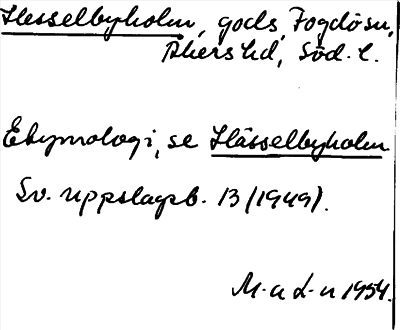 Hesselbyholm, gods, Fogdösn,
Åkers hd, Söd. l.
Etymologi, se Hässelbyholm
Sv. uppslagsb. 13 (1949).
M. a L-n 1954.